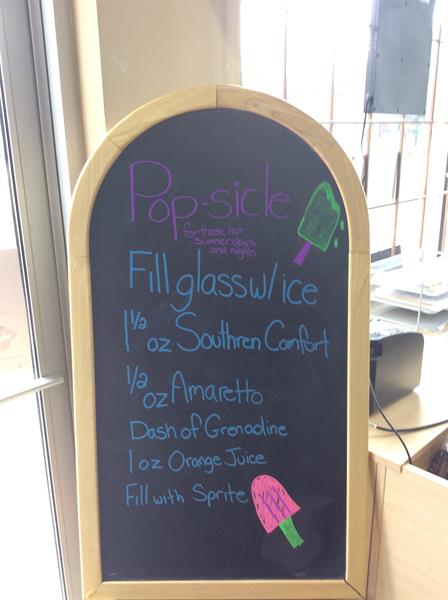 Pop-sicle
for those hot
summer days
and nights
Fill glass w/ ice
1 1/2 oz Southren Comfort
1/2 oz Amaretto
Dash of Grenadine
1 oz Orange Juice
Fill with Sprite